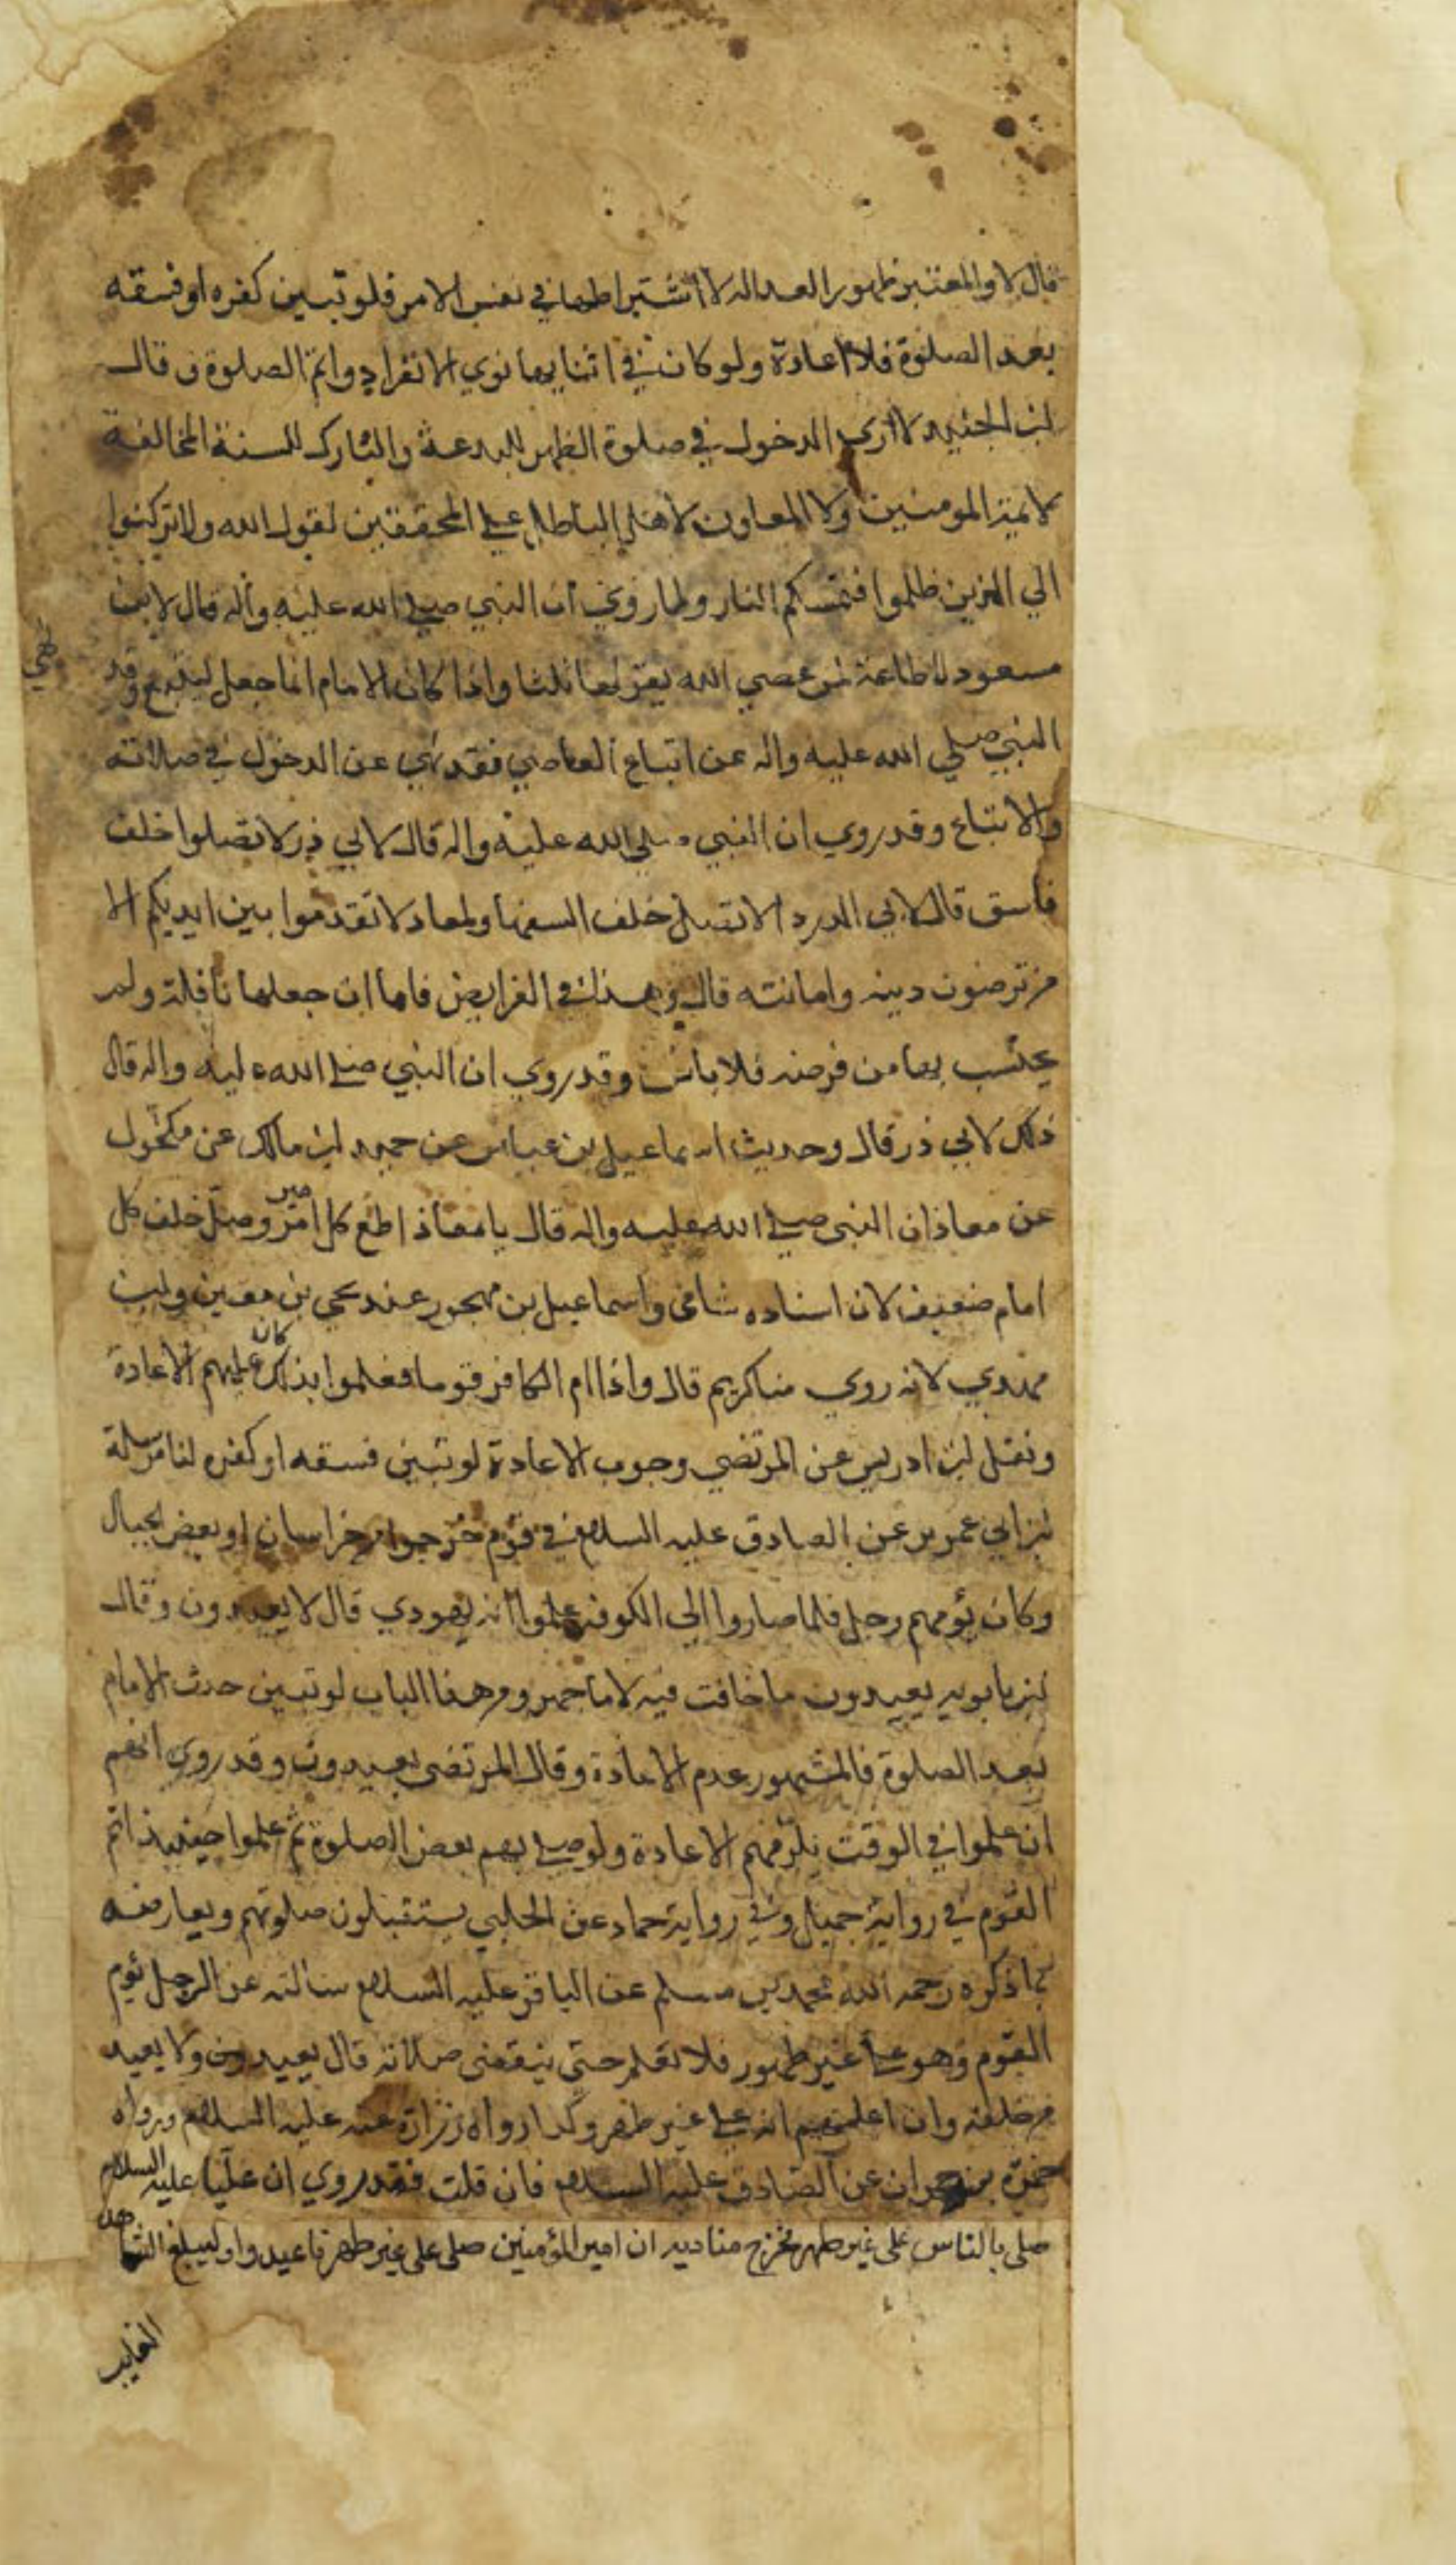 قال لا والمعتبر ظهور العدالة لا اشتراطها في نفس الامر فلو تبين كفره او فسقه
بعد الصلوة فلا اعادة ولو كان في اثنايها نوي الانفراد واتم الصلوة وقال
ابن الجنيد لا اري الدخول في صلوة الظاهر للبدعة والتارك للسنة المخالفة
لايمة المومنين ولا المعاون لاهل الباطل علي المحققين لقول الله ولا تركنوا
الي الذين ظلموا فتمسكم النار ولما روي ان النبي صلي الله عليه واله قال لابن
مسعود لا طاعة لمن عصي الله يقولها ثلثا واذا كان الامام انما جعل ليتبع وقد
نهي
النبي صلي الله عليه واله عن اتباع العاصي فقد نهي عن الدخول في صلاته
والاتباع وقد روي ان النبي صلي الله عليه واله قال لابي ذر لا تصلوا خلف
فاسق قال لابي الدردا لا تصل خلف السفها ولمعاد لا تقدموا بين ايديكم الا
من ترضون دينه وامانته قال وهذا في الفرايض فاما ان جعلها نافلة ولم
يحتسب بها من فرضه فلا باس وقد روي ان النبي صلي الله عليه واله قال
ذلك لابي ذر قال وحديث اسماعيل بن عياش عن حميد ابن مالك عن مكحول
عن معاذ ان النبي صلي الله عليه واله قال يا معاذ اطع كل امير وصل خلف كل
امام ضعيف لان اسناده شامي واسماعيل بن مهجور عند يحي بن معين وابن
مهدي لانه روي مناكير قال واذا ام الكافر قوما فعلموا بذلك كان عليهم الاعادة
ونقل ابن ادريس عن المرتضي وجوب الاعادة لو تبين فسقه او كفره لنا مرسلة
ابن ابي عمير عن الصادق عليه السلام في قوم خرجوا من خراسان او بعض الجبال
وكان يؤمهم رجل فلما صاروا الى الكوفة علموا انه يهودي قال لا يعيدون وقال
ابن بابويه يعيدون ما خافت فيه لا ما جهر ومن هذا الباب لو تبين حدث الامام
بعد الصلوة فالمشهور عدم الاعادة وقال المرتضى يعيدون وقد روي انهم
ان علموا في الوقت يلزمهم الاعادة ولو صلي بهم بعض الصلوة ثم علموا حينيذ اتم
القوم في رواية جميل وفي رواية حماد عن الحلبي يستقبلون صلوتهم ويعارضه
بما ذكره رحمه الله محمد بن مسلم عن الباقر عليه السلام سالته عن الرجل يؤم
القوم وهو علي غير طهور فلا نعلم حتى ينقضى صلاته قال يعيد ولا يعيد
من خلفه وان اعلمهم انه علي غير طهر وكذا رواه زرارة عنه عليه السلام ورواه
حمزة بن حمران عن الصادق عليه السلام فان قلت فقد روي ان عليا عليه السلام
صلى بالناس على غير طهر فخرج مناديه ان امير المؤمنين صلى على غير طهر فاعيدوا وليبلغ الشاهد
الغايب